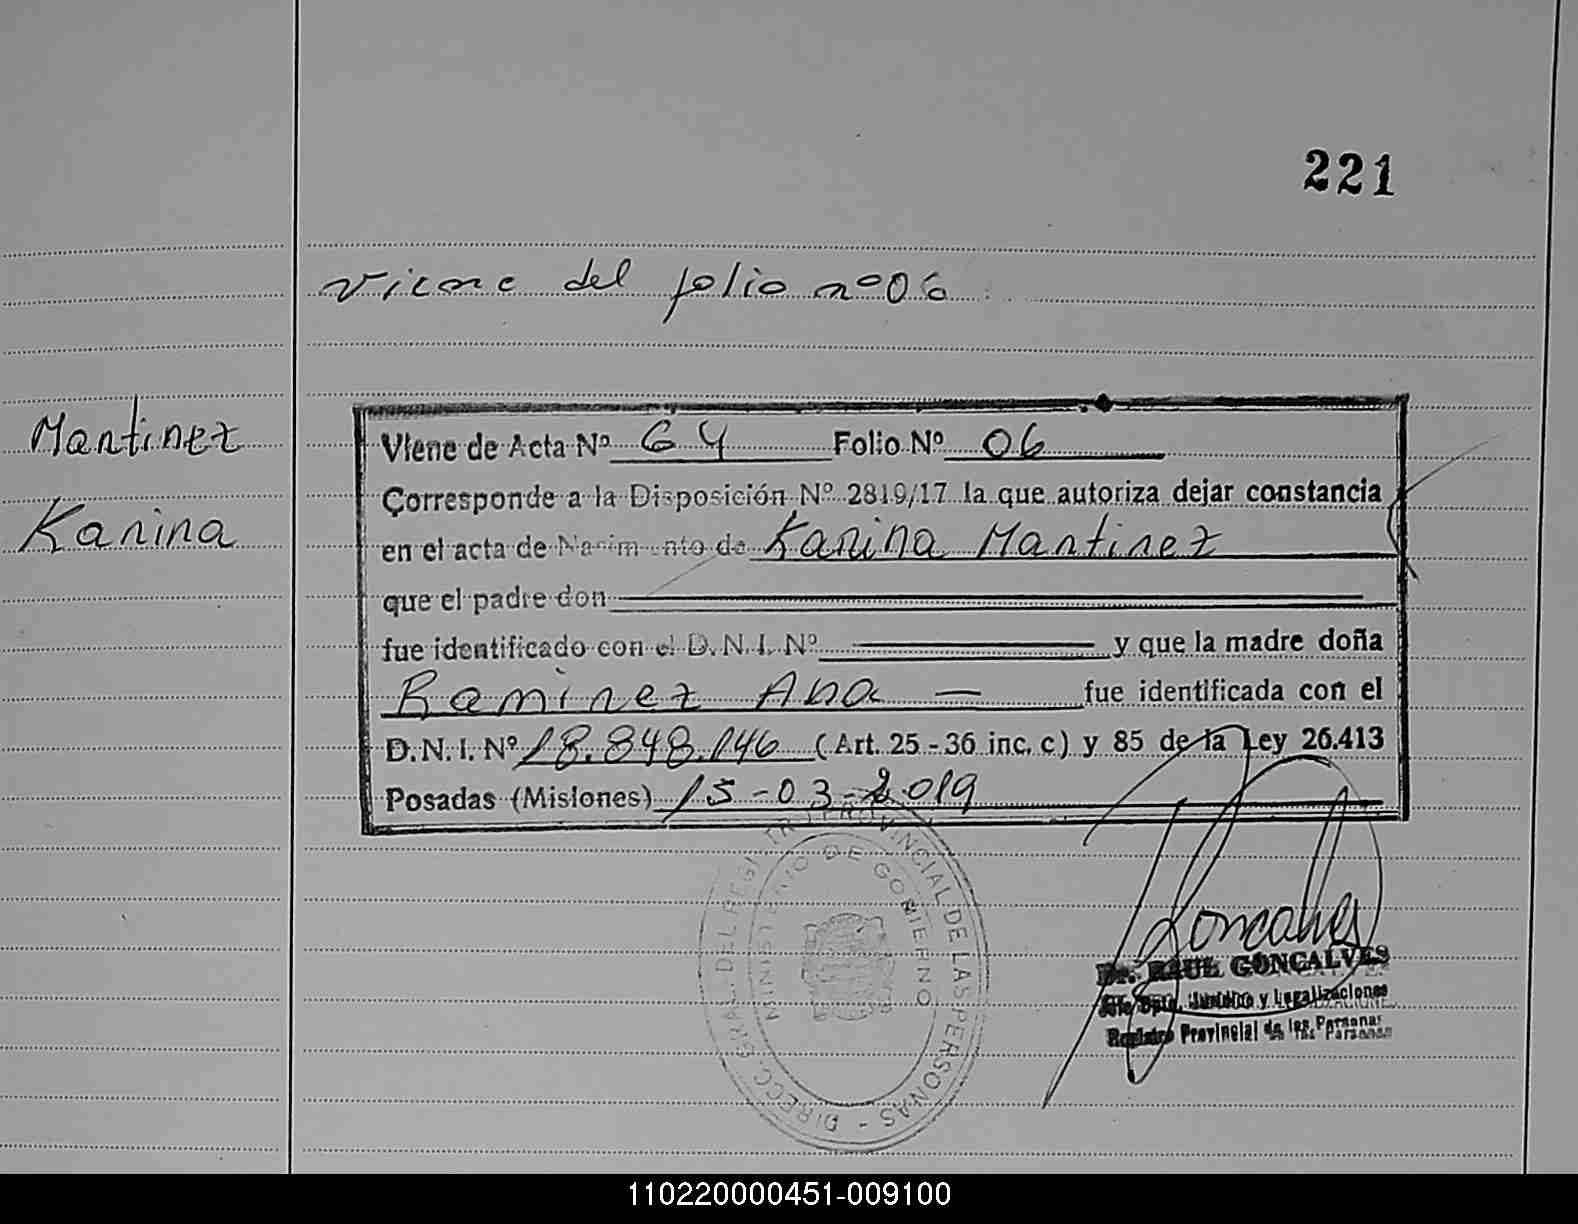 221
Viene del folio nº 06
Martinez
Karina
Viene de Acta Nº 64 Folio Nº 06
Corresponde a la Disposición Nº 2819/17 la que autoriza dejar constancia
en el acta de Nacimiento de Karina Martinez
que el padre don
fue identificado con el D. N. I. Nº y que la madre doña
Ramirez Ana — fue identificada con el
D. N. I. Nº 18.848.146 (Art. 25 - 36 inc. c) y 85 de la Ley 26.413
Posadas (Misiones) 15-03-2019
DIRECC. GRAL. DEL REG. PROVINCIAL DE LAS PERSONAS -
MINISTERIO DE GOBIERNO
Goncalves
Dr. RAUL GONCALVES
Jefe Dpto. Jurídico y Legalizaciones
Registro Provincial de las Personas
110220000451-009100